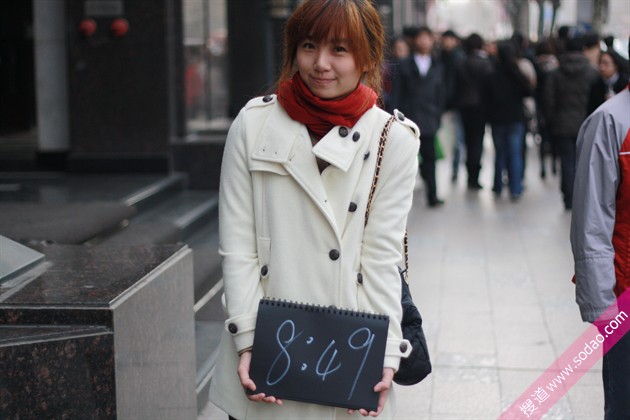 8:49
搜道 www.sodao.com